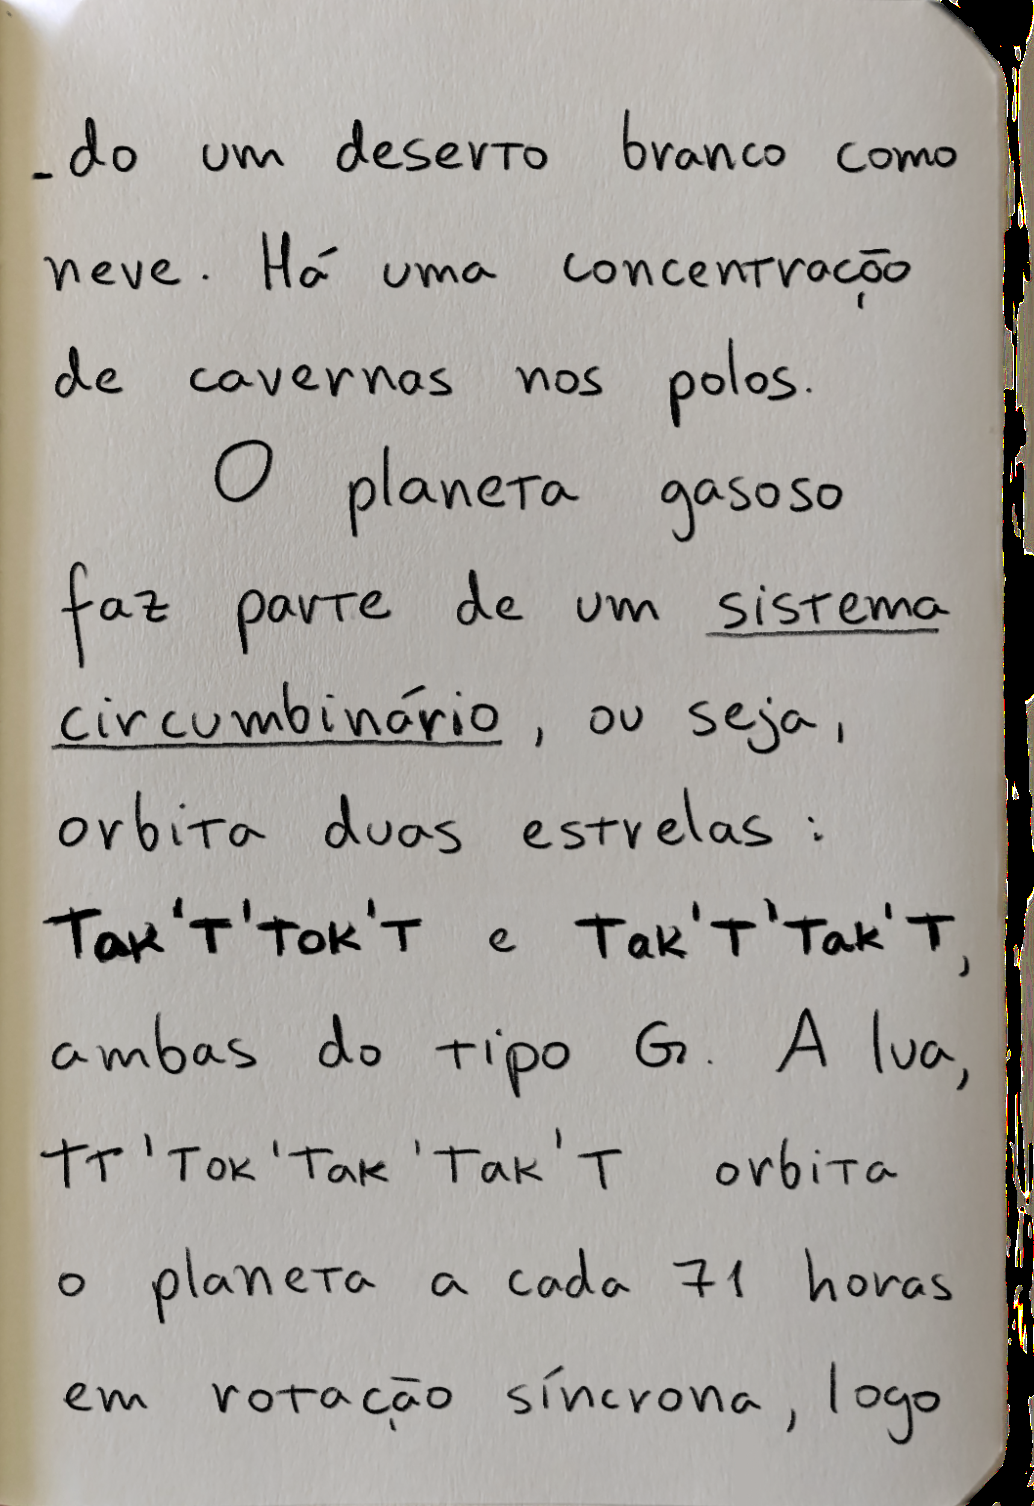 -do um deserto branco como
neve. Há uma concentração
de cavernas nos polos.
O planeta gasoso
faz parte de um sistema
circumbinário, ou seja,
orbita duas estrelas:
Tak'T'Tok'T e Tak'T'Tak'T,
ambas do tipo G. A lua,
TT'Tok'Tak'Tak'T orbita
o planeta a cada 71 horas
em rotação síncrona, logo